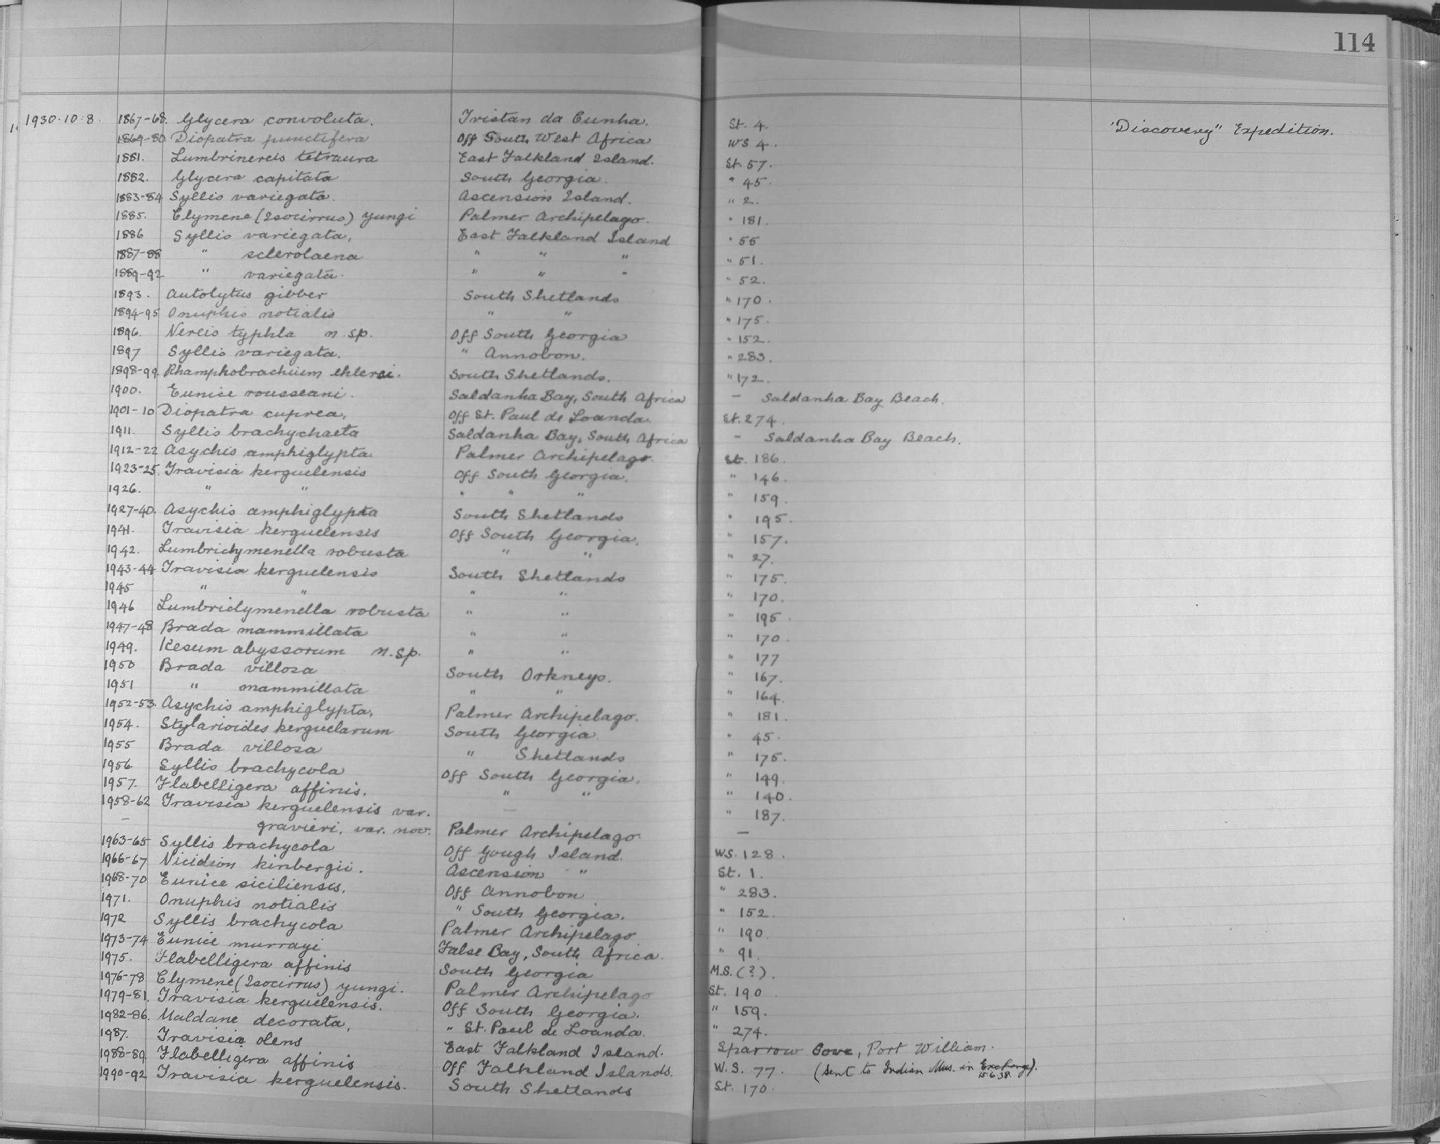 114
1930.10.8. 1867-68. Glycera convoluta. Tristan da Cunha. St. 4. "Discovery" Expedition.
1869-80 Diopatra punctifera Off South West Africa WS. 4.
1881. Lumbrinereis tetraura East Falkland Island. St. 57.
1882. Glycera capitata South Georgia. " 45.
1883-84 Syllis variegata. Ascension Island. " 2.
1885. Clymene (Isocirrus) yungi Palmer Archipelago. " 181.
1886 Syllis variegata. East Falkland Island " 55
1887-88 " sclerolaena " " " " 51.
1889-92 " variegata. " " " " 52.
1893. Autolytus gibber South Shetlands " 170.
1894-95 Onuphis notialis " " " 175.
1896. Nereis typhla n. sp. Off South Georgia " 152.
1897 Syllis variegata. " Annobon. " 283.
1898-99. Rhamphobrachium ehlersi. South Shetlands. " 172.
1900. Eunice rousseaui. Saldanha Bay, South Africa – Saldanha Bay Beach.
1901-10 Diopatra cuprea. Off St. Paul de Loanda. St. 274.
1911. Syllis brachychaeta Saldanha Bay, South Africa – Saldanha Bay Beach.
1912-22 Asychis amphiglypta Palmer Archipelago. St. 186.
1923-25. Travisia kerguelensis Off South Georgia. " 146.
1926. " " " " " " 159.
1927-40. Asychis amphiglypta South Shetlands " 195.
1941. Travisia kerguelensis Off South Georgia. " 157.
1942. Lumbriclymenella robusta " " " 27.
1943-44 Travisia kerguelensis South Shetlands " 175.
1945 " " " " " 170.
1946 Lumbriclymenella robusta " " " 195.
1947-48 Brada mammillata " " " 170.
1949. Kesum abyssorum n. sp. " " " 177
1950 Brada villosa South Orkneys. " 167.
1951 " mammillata " " " 164.
1952-53. Asychis amphiglypta. Palmer Archipelago. " 181.
1954. Stylarioides kerguelarum South Georgia. " 45.
1955 Brada villosa " Shetlands " 175.
1956 Syllis brachycola Off South Georgia. " 149.
1957. Flabelligera affinis. " " " 140.
1958-62 Travisia kerguelensis var. – " 187.
– gravieri, var. nov. Palmer Archipelago. –
1963-65 Syllis brachycola Off Gough Island. WS. 128.
1966-67 Nicidion kinbergii. Ascension " St. 1.
1968-70 Eunice siciliensis. Off Annobon " 283.
1971. Onuphis notialis " South Georgia. " 152.
1972 Syllis brachycola Palmer Archipelago " 190.
1973-74 Eunice murrayi False Bay, South Africa. " 91.
1975. Flabelligera affinis South Georgia M.S. (?).
1976-78 Clymene (Isocirrus) yungi. Palmer Archipelago St. 190
1979-81. Travisia kerguelensis. Off South Georgia. " 159.
1982-86. Maldane decorata. " St. Paul de Loanda. " 274.
1987. Travisia olens East Falkland Island. Sparrow Cove, Port William.
1988-89 Flabelligera affinis Off Falkland Islands. W.S. 77. (Sent to Indian Mus. in Exchange). 15.6.38
1990-92 Travisia kerguelensis. South Shetlands St. 170.